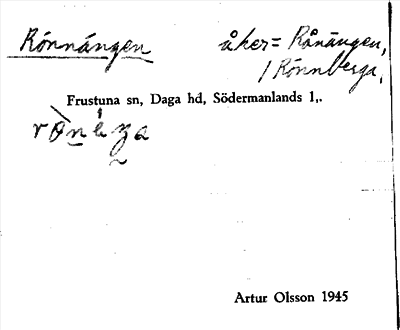 Rönnängen åker = Rånängen,
/ Rönnberga,
Frustuna sn, Daga hd, Södermanlands l,.
Artur Olsson 1945